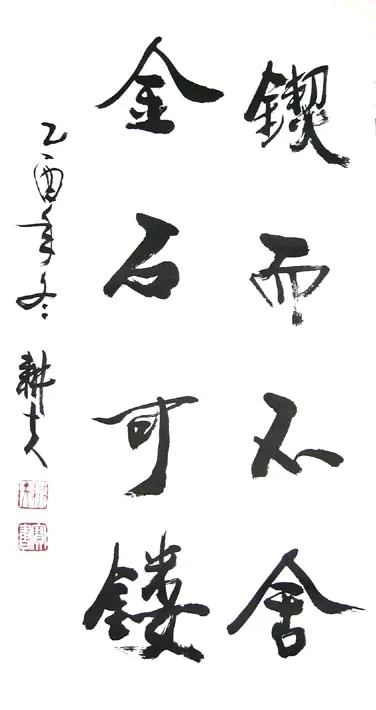 锲而不舍
金石可镂
乙酉年冬 耕夫